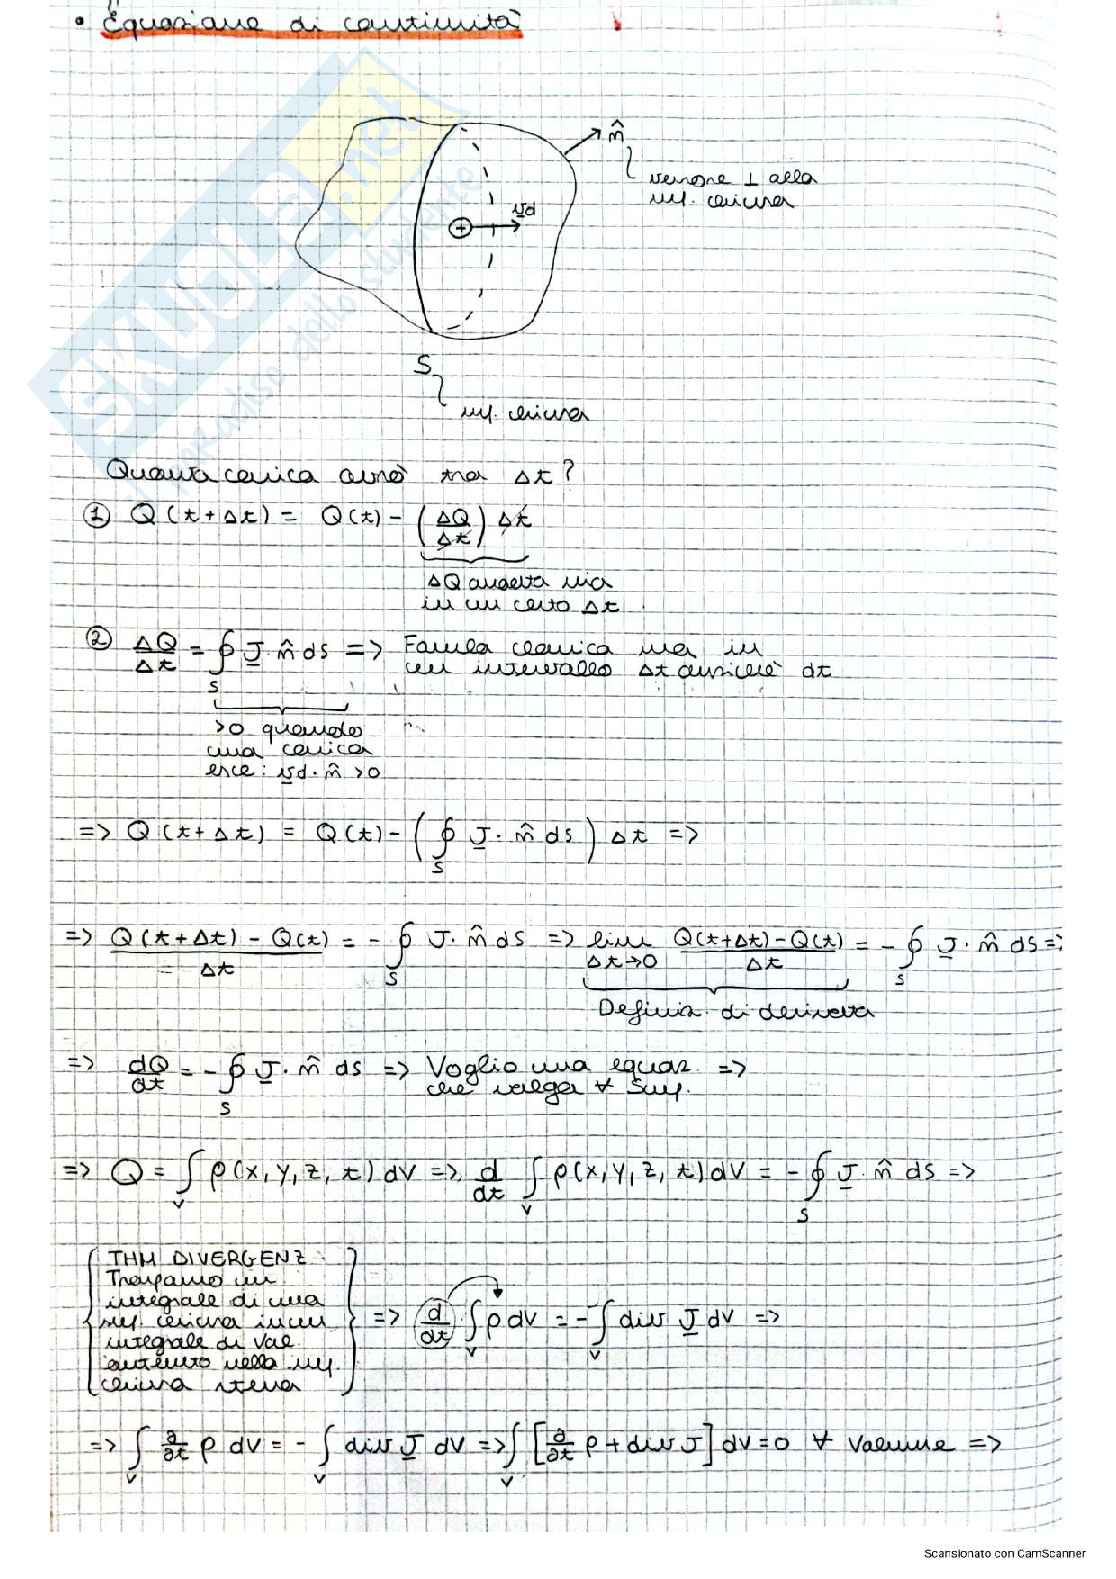 • Equazione di continuità
n̂
versore ⊥ alla
sup. chiusa
vd
+
S
sup. chiusa
Quanta carica avrò tra Δt?
① Q(t+Δt) = Q(t) - (ΔQ/Δt) Δt
ΔQ andata via
in un certo Δt
② ΔQ/Δt = ∮_S J · n̂ ds => Formula classica ma in
un intervallo Δt anziché dt
>0 quando
una carica
esce: vd · n̂ >0
=> Q(t+Δt) = Q(t) - (∮_S J · n̂ ds) Δt =>
=> Q(t+Δt) - Q(t) / Δt = - ∮_S J · n̂ ds => lim Δt→0 Q(t+Δt) - Q(t) / Δt = - ∮_S J · n̂ ds =>
Definiz. di derivata
=> dQ/dt = - ∮_S J · n̂ ds => Voglio una equaz. =>
che valga ∀ Sup.
=> Q = ∫_V ρ(x, y, z, t) dV => d/dt ∫_V ρ(x, y, z, t) dV = - ∮_S J · n̂ ds =>
THM DIVERGENZ.
Trasformo un
integrale di una
sup. chiusa in un
integrale di vol.
contenuto nella sup.
chiusa stessa
=> d/dt ∫_V ρ dV = - ∫_V div J dV =>
=> ∫_V ∂/∂t ρ dV = - ∫_V div J dV => ∫_V [∂/∂t ρ + div J] dV = 0 ∀ Volume =>
Scansionato con CamScanner
SKUOLA.net
paradiso dello studente